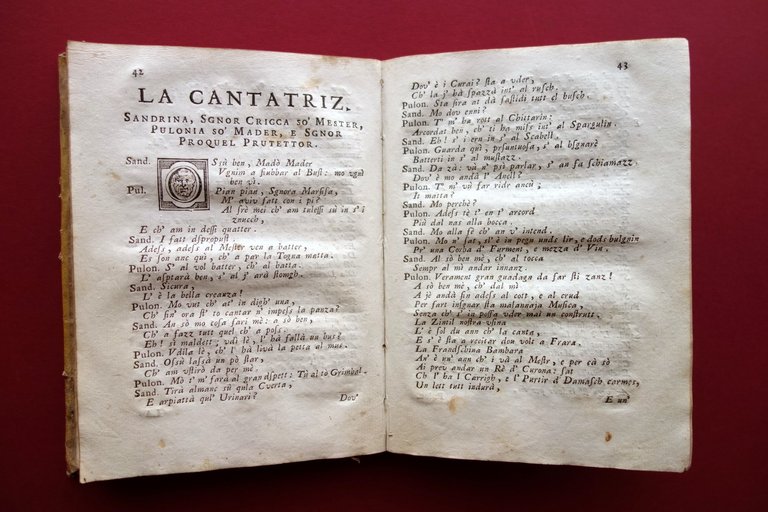 42
LA CANTATRIZ.
SANDRINA, SGNOR CRICCA SO' MESTER,
PULONIA SO' MADER, E SGNOR
PROQUEL PRUTETTOR.
Sand. OSsù ben, Madò Mader
Vgnim a fiubbar al Bust: mo vgnì
ben vì.
Pul. Pian pian, Sgnora Marfisa,
M' aviv fatt con i pì?
Al srè mei ch' am taless sù in s' i
znucch,
E ch' am in dess quatter.
Sand. I fatt dspropust.
Adess, adess al Mester ven a batter,
Es son anc quì, ch' a par la Togna matta.
Pulon. S' al vol batter, ch' al batta.
L' asptarà ben, s' al j' arà stomgh.
Sand. Sicura,
L' è la bella creanza!
Pulon. Mo vut ch' at' in digh' una,
Ch' fin' ora st' to cantar n' impess la panza?
Sand. An sò mo cosa fari mè: a sò ben,
Ch' a fazz tutt quel ch' a poss.
Ehb! sì maldett; vdì lè, l' hà fallà un bus?
Pulon. Vdila lè, ch' l' hà livà la petta al mus.
Sand. Ossù lassà un pò star,
Ch' am vstirò da per mè.
Pulon. Mò t' m' farà al grand spett: Tù al to Grimbal.
Sand. Tirà almanc sù qula Cverta,
E arpiattà qul' Urinari?
Dov'
43
Dov' è i Curai? sta a vder,
Ch' la j' hà spazzà int' al rusch.
Pulon. Sta sira at dà fastidi tutt el busch.
Sand. Mo dov enni?
Pulon. T' m' ha rott al Chittarin:
Arcordat ben, ch' ti ha miss int' al Spargulin.
Sand. Eh! s' i era in s' al Scabell.
Pulon. Guarda quì, prsuntuosa, s' al bsgnarè
Batterti in s' al mustazz.
Sand. Da zà: và n' più parlar, s' an fa schiamazz.
Dov' è mo andà l' Anell?
Pulon. T' m' và far ridr ancu;
It matta?
Sand. Mo perchè?
Pulon. Adess tè t' en t' arcord
Più dal nas alla bocca.
Sand. Mo alla fè ch' an v' intend.
Pulon. Mo n' sat, sl' è in pegn unds lir, e dods bulgnin
Pr' una Corba d' Furment, e mezza d' Vin.
Sand. Al sò ben mè, ch' al tocca
Sempr al mì andar innanz.
Pulon. Verament gran guadagn da far stì zanz!
A sò ben mè, ch' dal mì
A jè andà fin adess al cott, e al crud
Per fart insgnar sta malanaja Musica,
Senza ch' s' in possa vder mai un construtt.
La Zintil nostra vsina
L' è sol du ann ch' la canta,
E s' è sta a recitar dou volt a Frara.
La Franzschina Bambara
An' è un' ann ch' i và al Mestr, e per cà sò
Ai prev andar un Rè d' Curona: sat
Ch' l' ha l Carrigh, e l' Partir d' Damasch cormes,
Un lett tutt indurà,
E un'